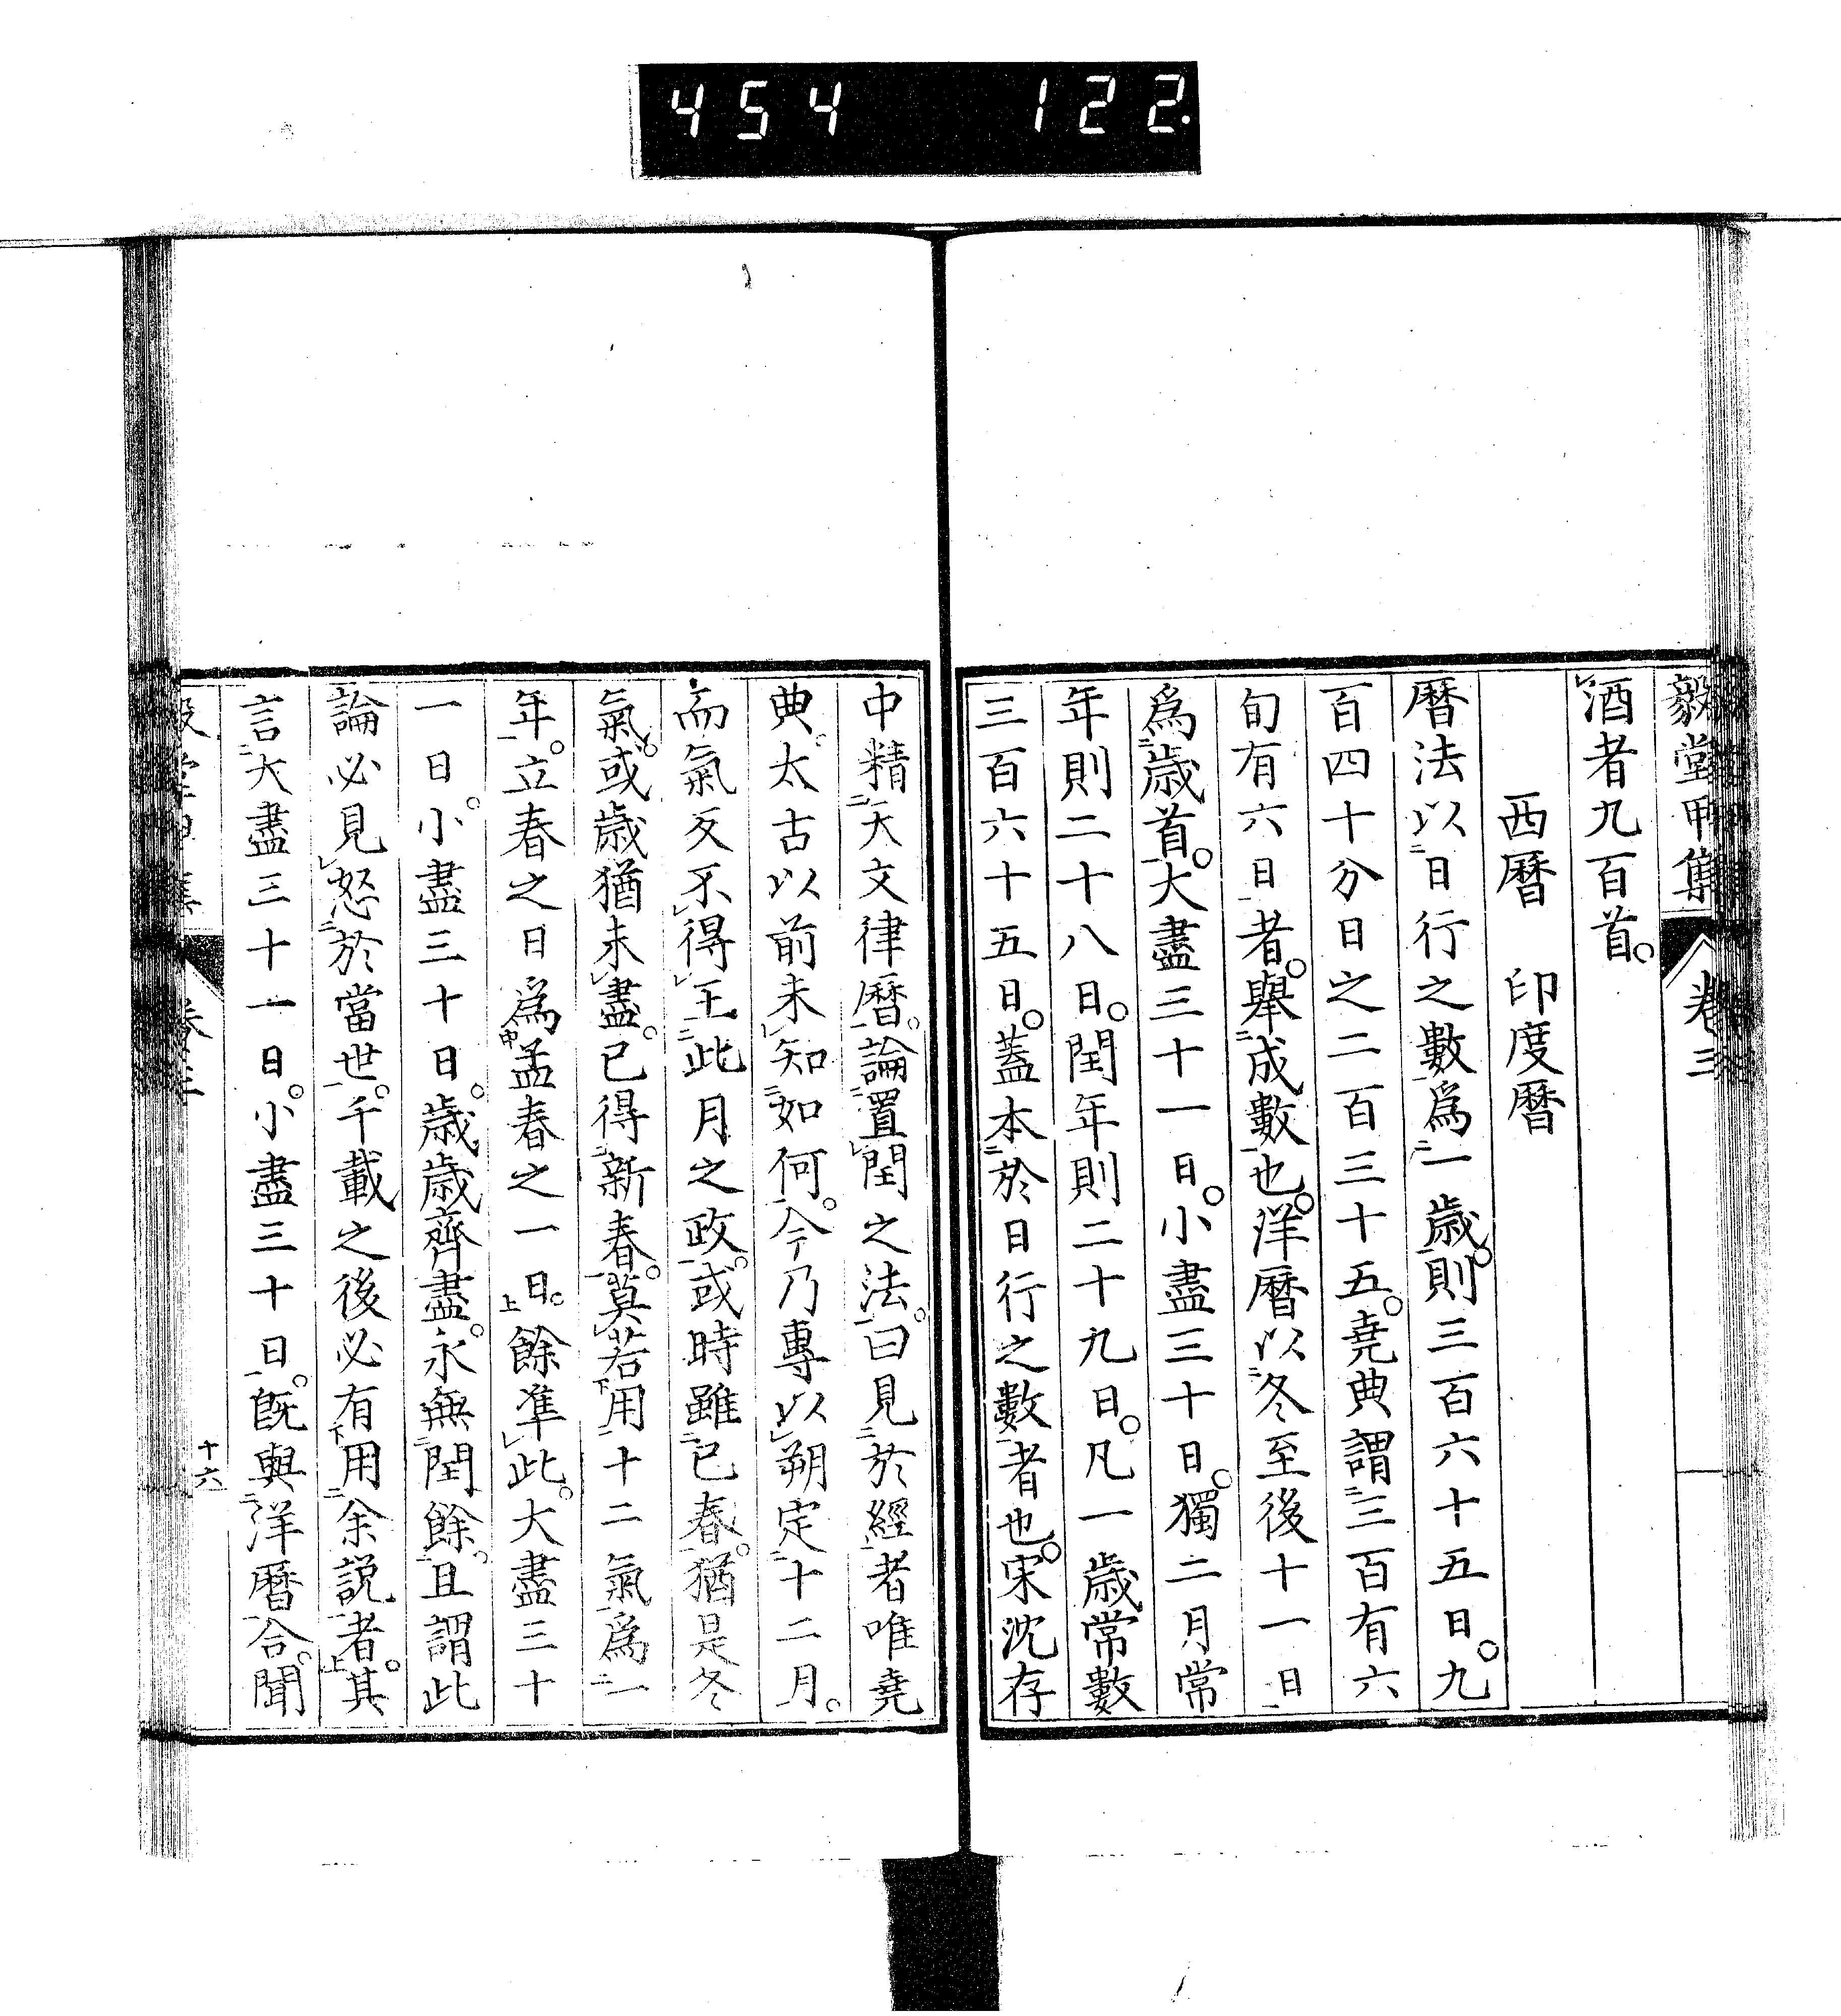 454 122.
毅堂甲集 卷三
酒者九百首。
西曆 印度曆
曆法以日行之數爲一歲。則三百六十五日。九
百四十分日之二百三十五。堯典謂三百有六
旬有六日者。舉成數也。洋曆以冬至後十一日
爲歲首。大盡三十一日。小盡三十日。獨二月常
年則二十八日。閏年則二十九日。凡一歲常數
三百六十五日。蓋本於日行之數者也。宋沈存
中精天文律曆。論置閏之法。曰見於經者唯堯
典。太古以前未知如何。今乃專以朔定十二月。
而氣反不得王此月之政。或時雖已春。猶是冬
氣。或歲猶未盡。已得新春。莫若用十二氣爲一
年。立春之日爲孟春之一日。餘準此。大盡三十
一日。小盡三十日。歲歲齊盡。永無閏餘。且謂此
論必見怒於當世。千載之後必有用余說者。其
言大盡三十一日。小盡三十日。既與洋曆合。聞
十六